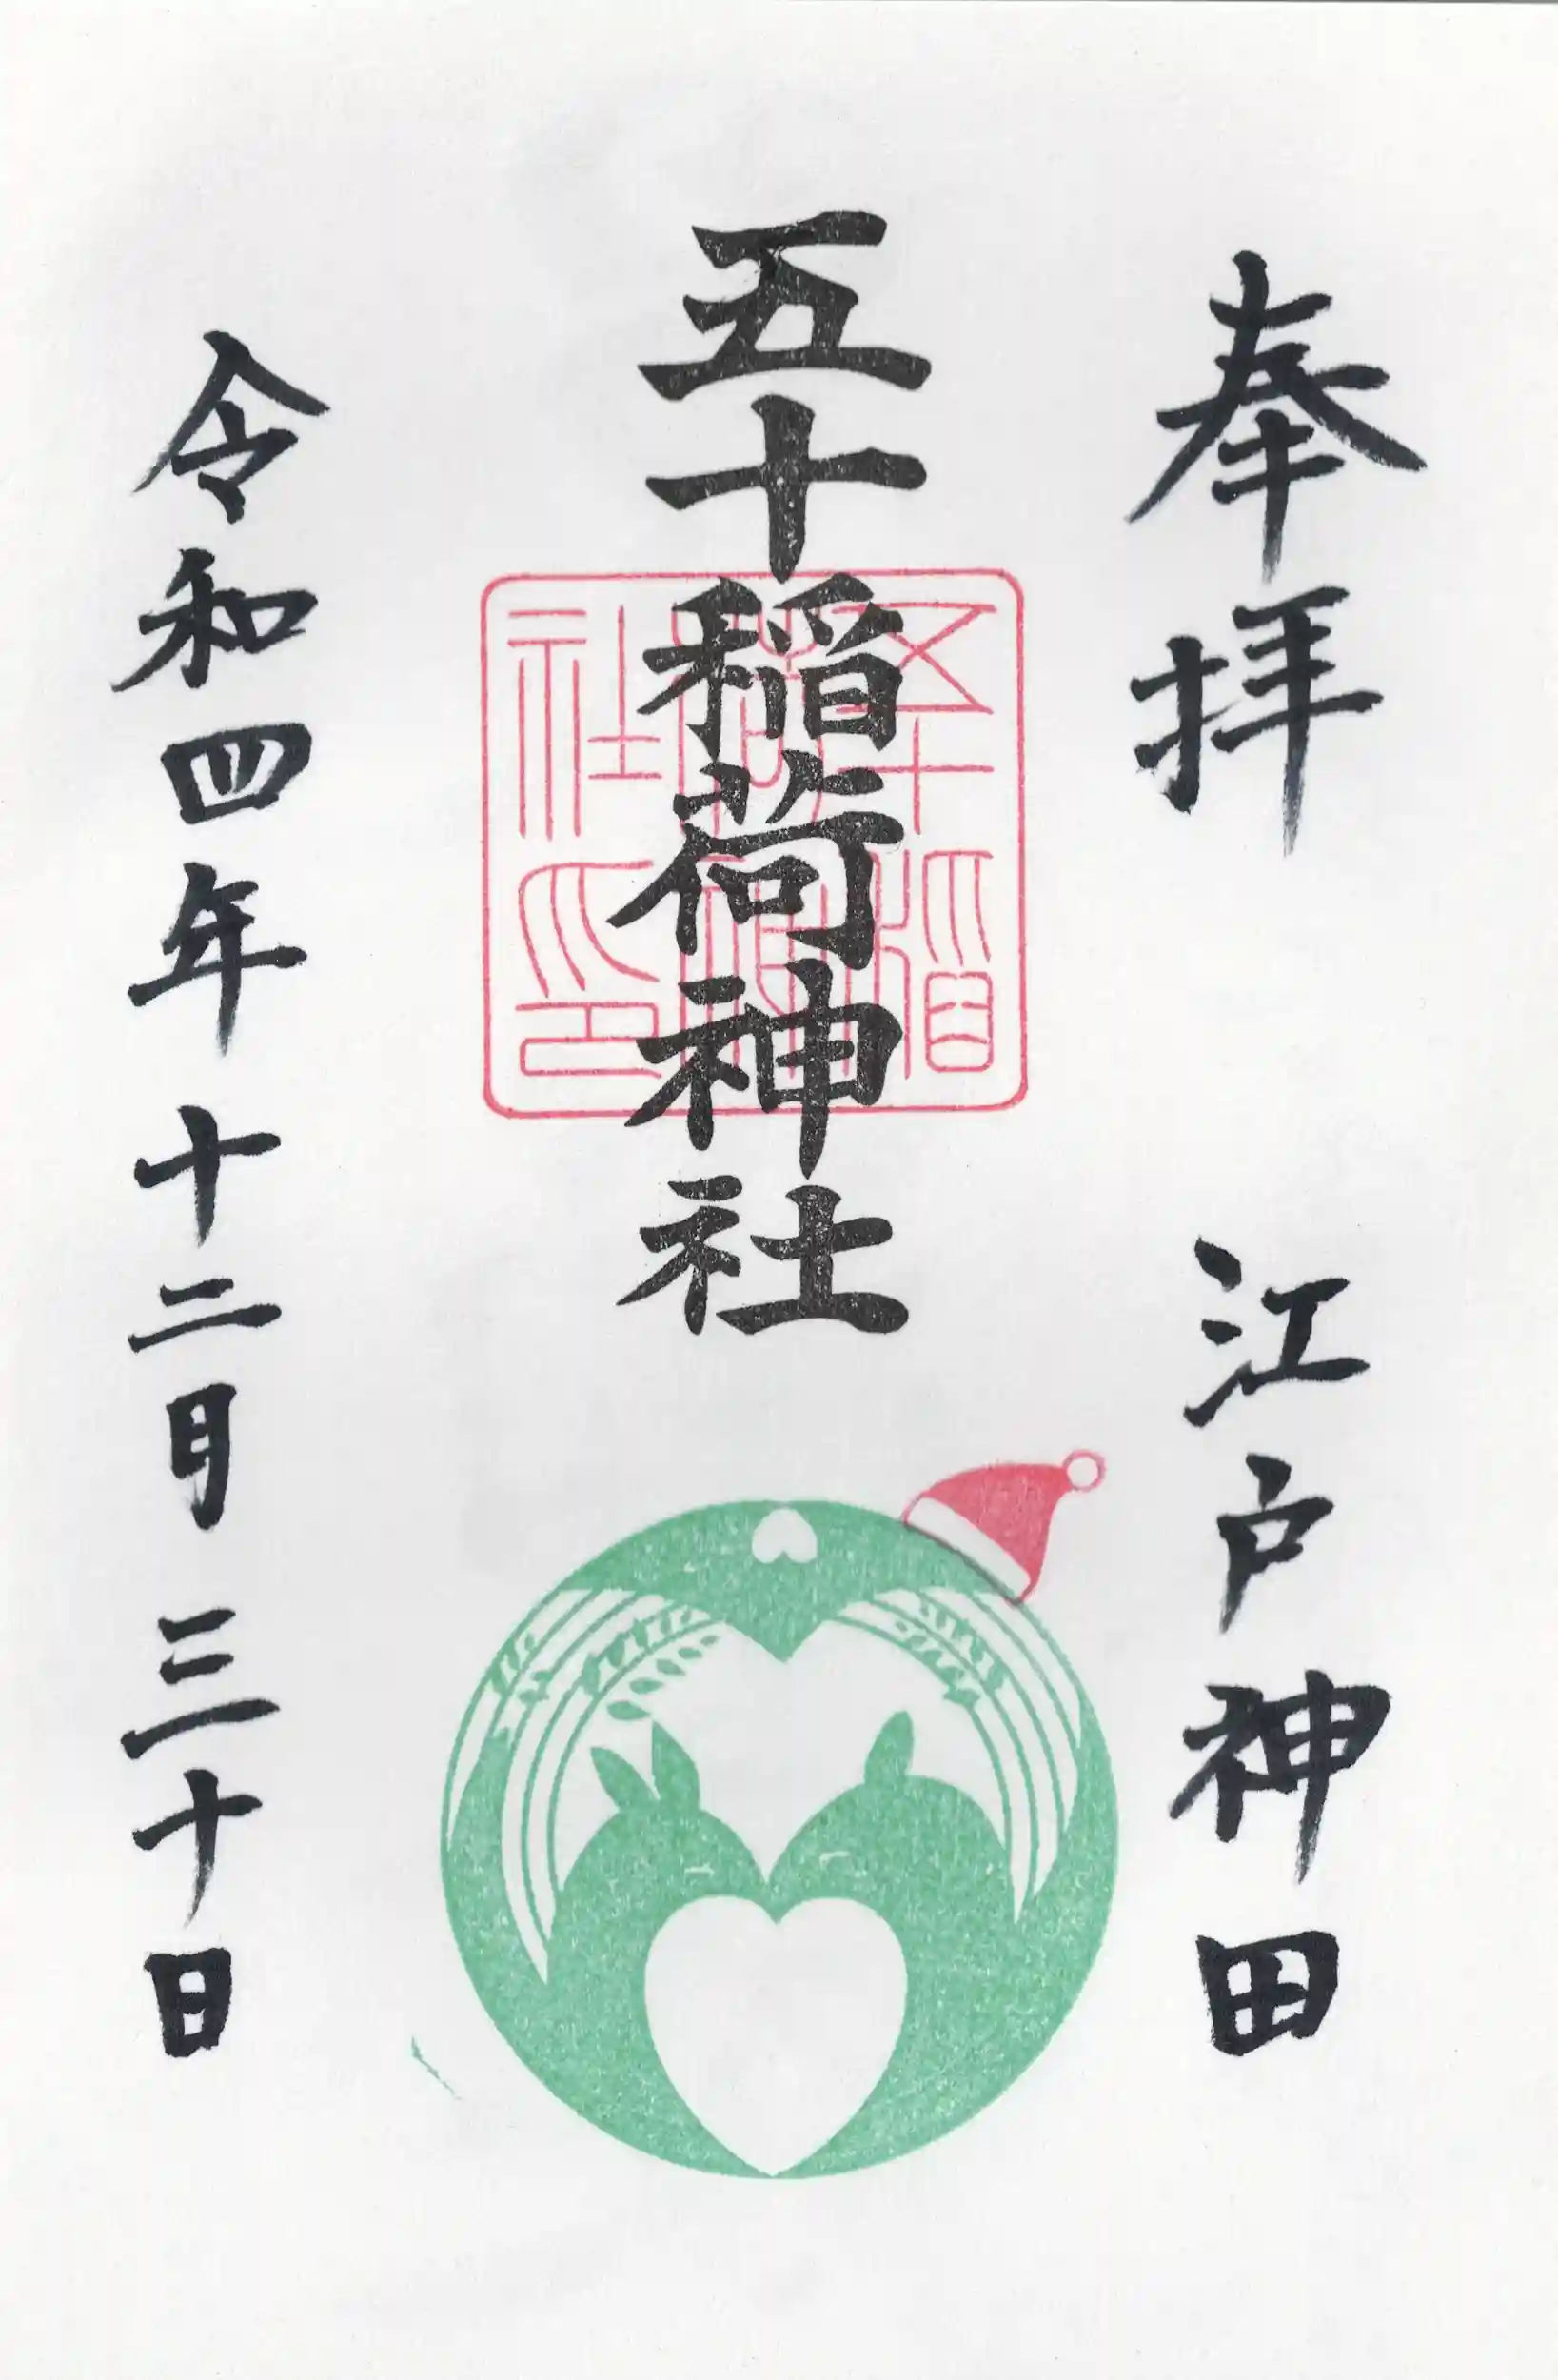 奉拝
江戸神田
五十稲荷神社
五十稲荷神社印
令和四年十二月三十日